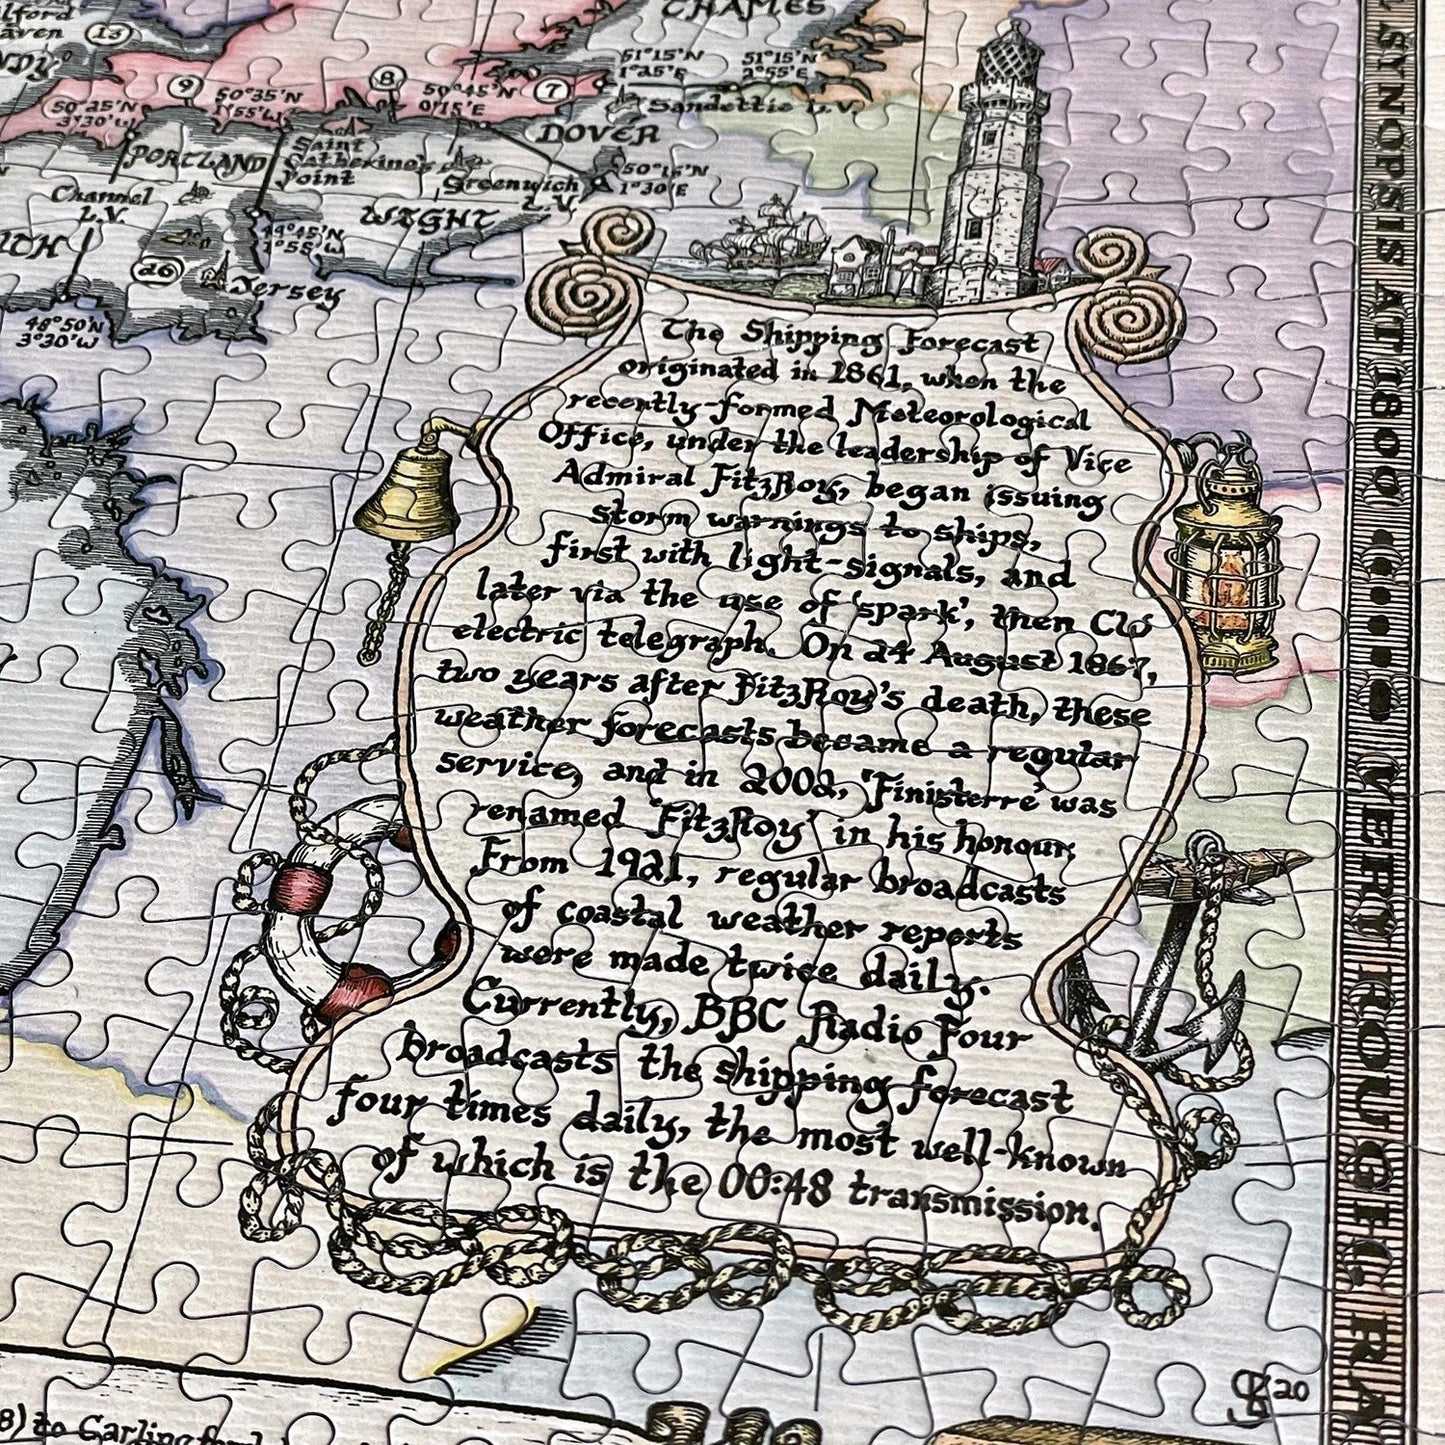 CHAMES
ilford
aven
13
NDY
9
8
7
51°15'N
1°25'E
51°15'N
2°55'E
50°25'N
3°30'W
50°35'N
1°55'W
50°45'N
0°15'E
Sandettie L.V.
DOVER
PORTLAND
Saint
Catherine's
Point
Greenwich
L.V.
50°15'N
1°30'E
Channel
L.V.
WIGHT
49°45'N
1°55'W
26
Jersey
48°50'N
3°30'W
The Shipping Forecast
originated in 1861, when the
recently-formed Meteorological
Office, under the leadership of Vice
Admiral FitzRoy, began issuing
storm warnings to ships,
first with light-signals, and
later via the use of 'spark', then Clo
electric telegraph. On 24 August 1867,
two years after FitzRoy's death, these
weather forecasts became a regular
service, and in 2002, 'Finisterre' was
renamed 'FitzRoy' in his honour.
From 1921, regular broadcasts
of coastal weather reports
were made twice daily.
Currently, BBC Radio Four
broadcasts the shipping forecast
four times daily, the most well-known
of which is the 00:48 transmission.
SYNOPSIS AT 1800 • • • • • • VERY ROUGH. RA
20
8) to Carlingford